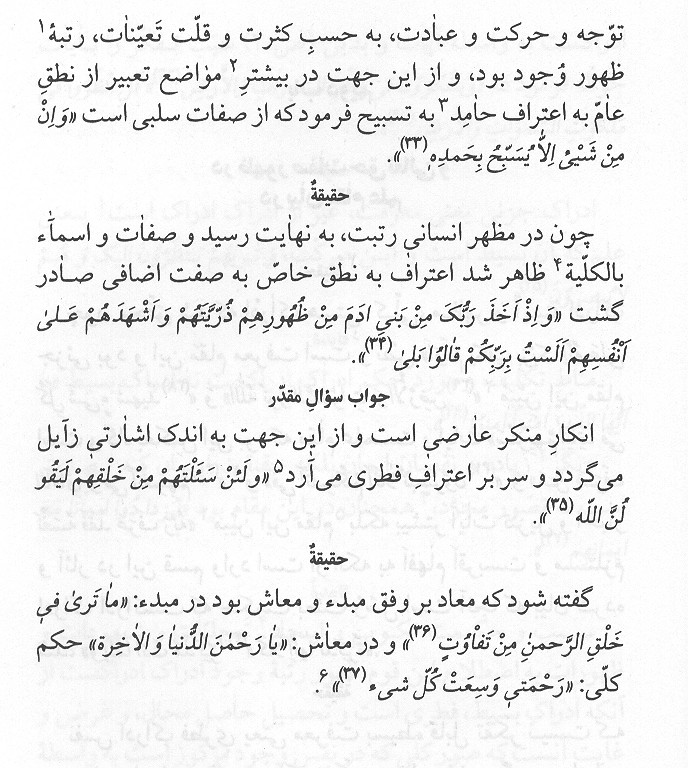 توّجه و حرکت و عباٰدت، به حسبِ کثرت و قلّت تَعیّناٰت، رتبهٔ ۱
ظهور وُجود بود، و از این جهت در بیشترِ ۲ موٰاضع تعبیر از نطقِ
عاٰمّ به اعتراف حاٰمِد ۳ به تسبیح فرمود که از صفات سلبی است «وَ اِنْ
مِنْ شَیْئ اِلّاٰ یُسَبّحُ بِحَمدِهِٖ (۳۳)».
حقیقةٌ
چون در مظهر انسانی رتبت، به نهاٰیت رسید و صفاٰت و اسماٰء
بالکلّیة ۴ ظاٰهر شد اعتراف به نطق خاٰصّ به صفت اضافی صاٰدر
گشت «وَ اِذْ اَخَذَ رَبُّکَ مِنْ بَنیٖ اٰدَمَ مِنْ ظُهُورِهِمْ ذُرّیَّتَهُمْ وَ اَشْهَدَهُمْ عَلیٰ
اَنْفُسِهِمْ اَلَسْتُ بِرَبِّکُمْ قاٰلُوا بَلیٰ (۳۴)».
جواب سؤالِ مقدّر
انکارِ منکر عاٰرضی است و از این جهت به اندک اشاٰرتیٖ زاٰیل
می‌گردد و سر بر اعترافِ فطری می‌آرد ۵ «ولَئنْ سَئَلْتَهُمْ مِنْ خَلْقِهِمْ لَیَقُو
لُنَّ اللّه (۳۵)».
حقیقةٌ
گفته شود که معاد بر وفق مبدء و معاش بود در مبدء: «ماٰ تَریٰ فیٖ
خَلْقِ الرَّحمنِ مِنْ تَفاٰوُتٍ (۳۶)» و در معاٰش: «یاٰ رَحْمٰنَ الدُّنیاٰ وَ الاٰخِرة» حکم
کلّی: «رَحْمَتیٖ وَسِعَتْ کُلّ شیء (۳۷)» ۶.